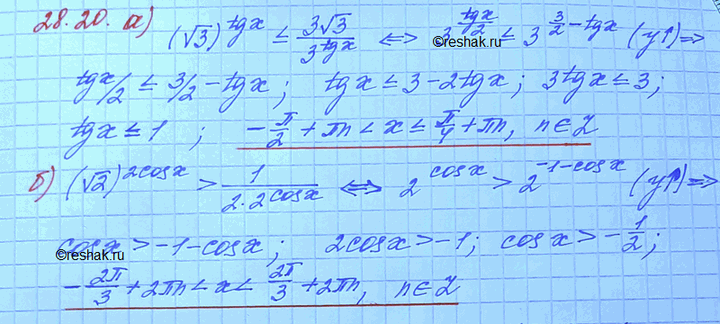 28.20. а) (√3)^tgx ≤ 3√3/3^tgx ⇔ 3^(tgx/2) ≤ 3^(3/2-tgx) (y↑) ⇒
©reshak.ru
tgx/2 ≤ 3/2 - tgx; tgx ≤ 3-2tgx; 3tgx ≤ 3;
tgx ≤ 1; -π/2 + πn < x ≤ π/4 + πn, n∈Z
б) (√2)^2cosx > 1/(2·2^cosx) ⇔ 2^cosx > 2^(-1-cosx) (y↑) ⇒
cosx > -1-cosx; 2cosx > -1; cosx > -1/2;
©reshak.ru
-2π/3 + 2πn < x < 2π/3 + 2πn, n∈Z